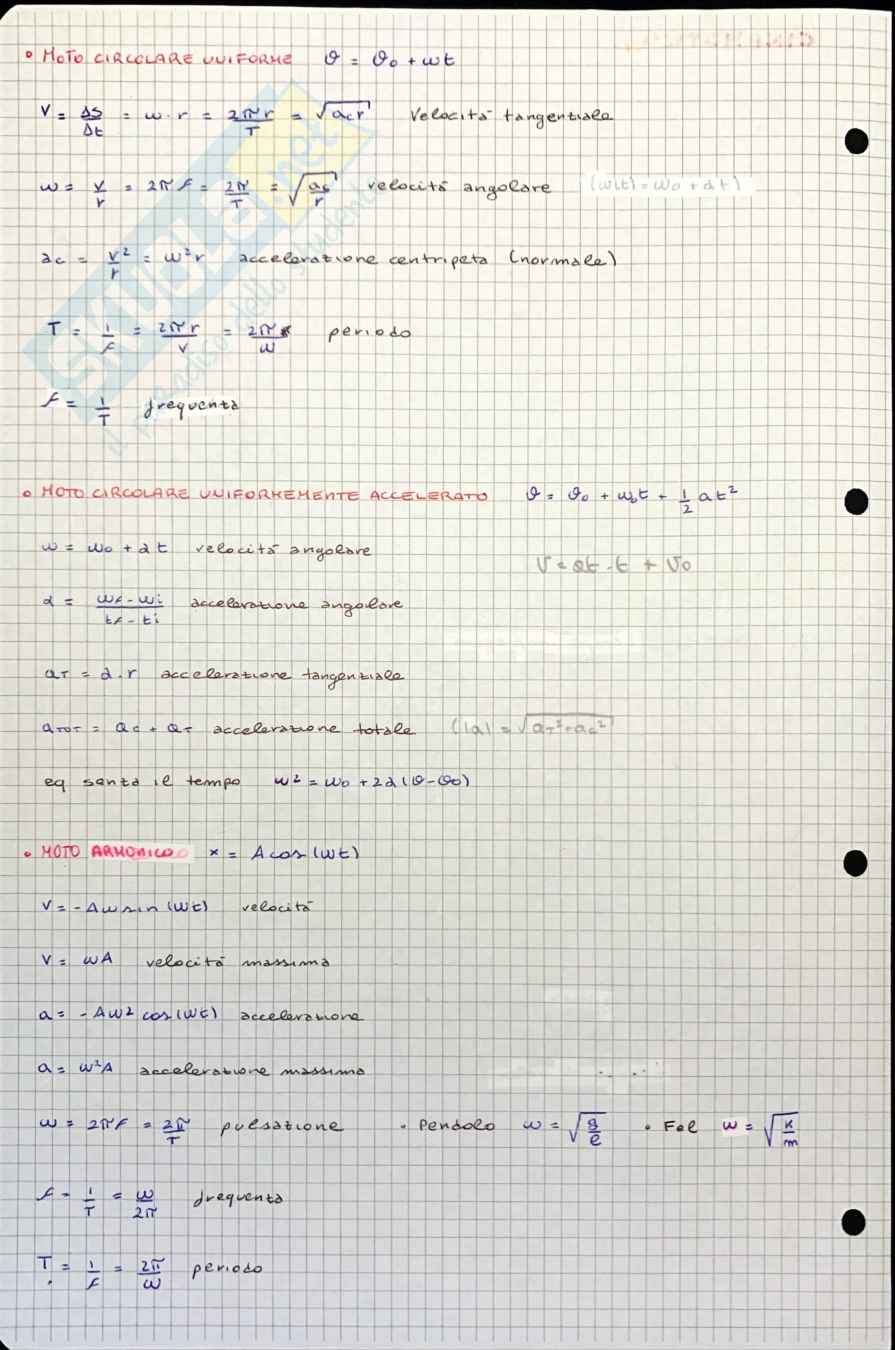 • MOTO CIRCOLARE UNIFORME ϑ = ϑ₀ + ωt
V = Δs/Δt = ω · r = 2πr/T = √(a_c r) Velocità tangenziale
ω = v/r = 2πf = 2π/T = √(a_c/r) velocità angolare (ω(t) = ω₀ + αt)
a_c = v²/r = ω²r accelerazione centripeta (normale)
T = 1/f = 2πr/v = 2π/ω periodo
f = 1/T frequenza
SKUOLA.net
il paradiso dello studente
• MOTO CIRCOLARE UNIFORMEMENTE ACCELERATO ϑ = ϑ₀ + ω₀t + 1/2 αt²
ω = ω₀ + αt velocità angolare
V = at · t + V₀
α = (ωf - ωi)/(tf - ti) accelerazione angolare
a_T = α · r accelerazione tangenziale
a_TOT = a_c + a_T accelerazione totale (|a| = √(a_T² + a_c²)
eq senza il tempo ω² = ω₀ + 2α(ϑ - ϑ₀)
• MOTO ARMONICO x = A cos (ωt)
V = -Aω sin (ωt) velocità
V = ωA velocità massima
a = -Aω² cos(ωt) accelerazione
a = ω²A accelerazione massima
ω = 2πf = 2π/T pulsazione • Pendolo ω = √(g/l) • Fel ω = √(k/m)
f = 1/T = ω/2π frequenza
T = 1/f = 2π/ω periodo